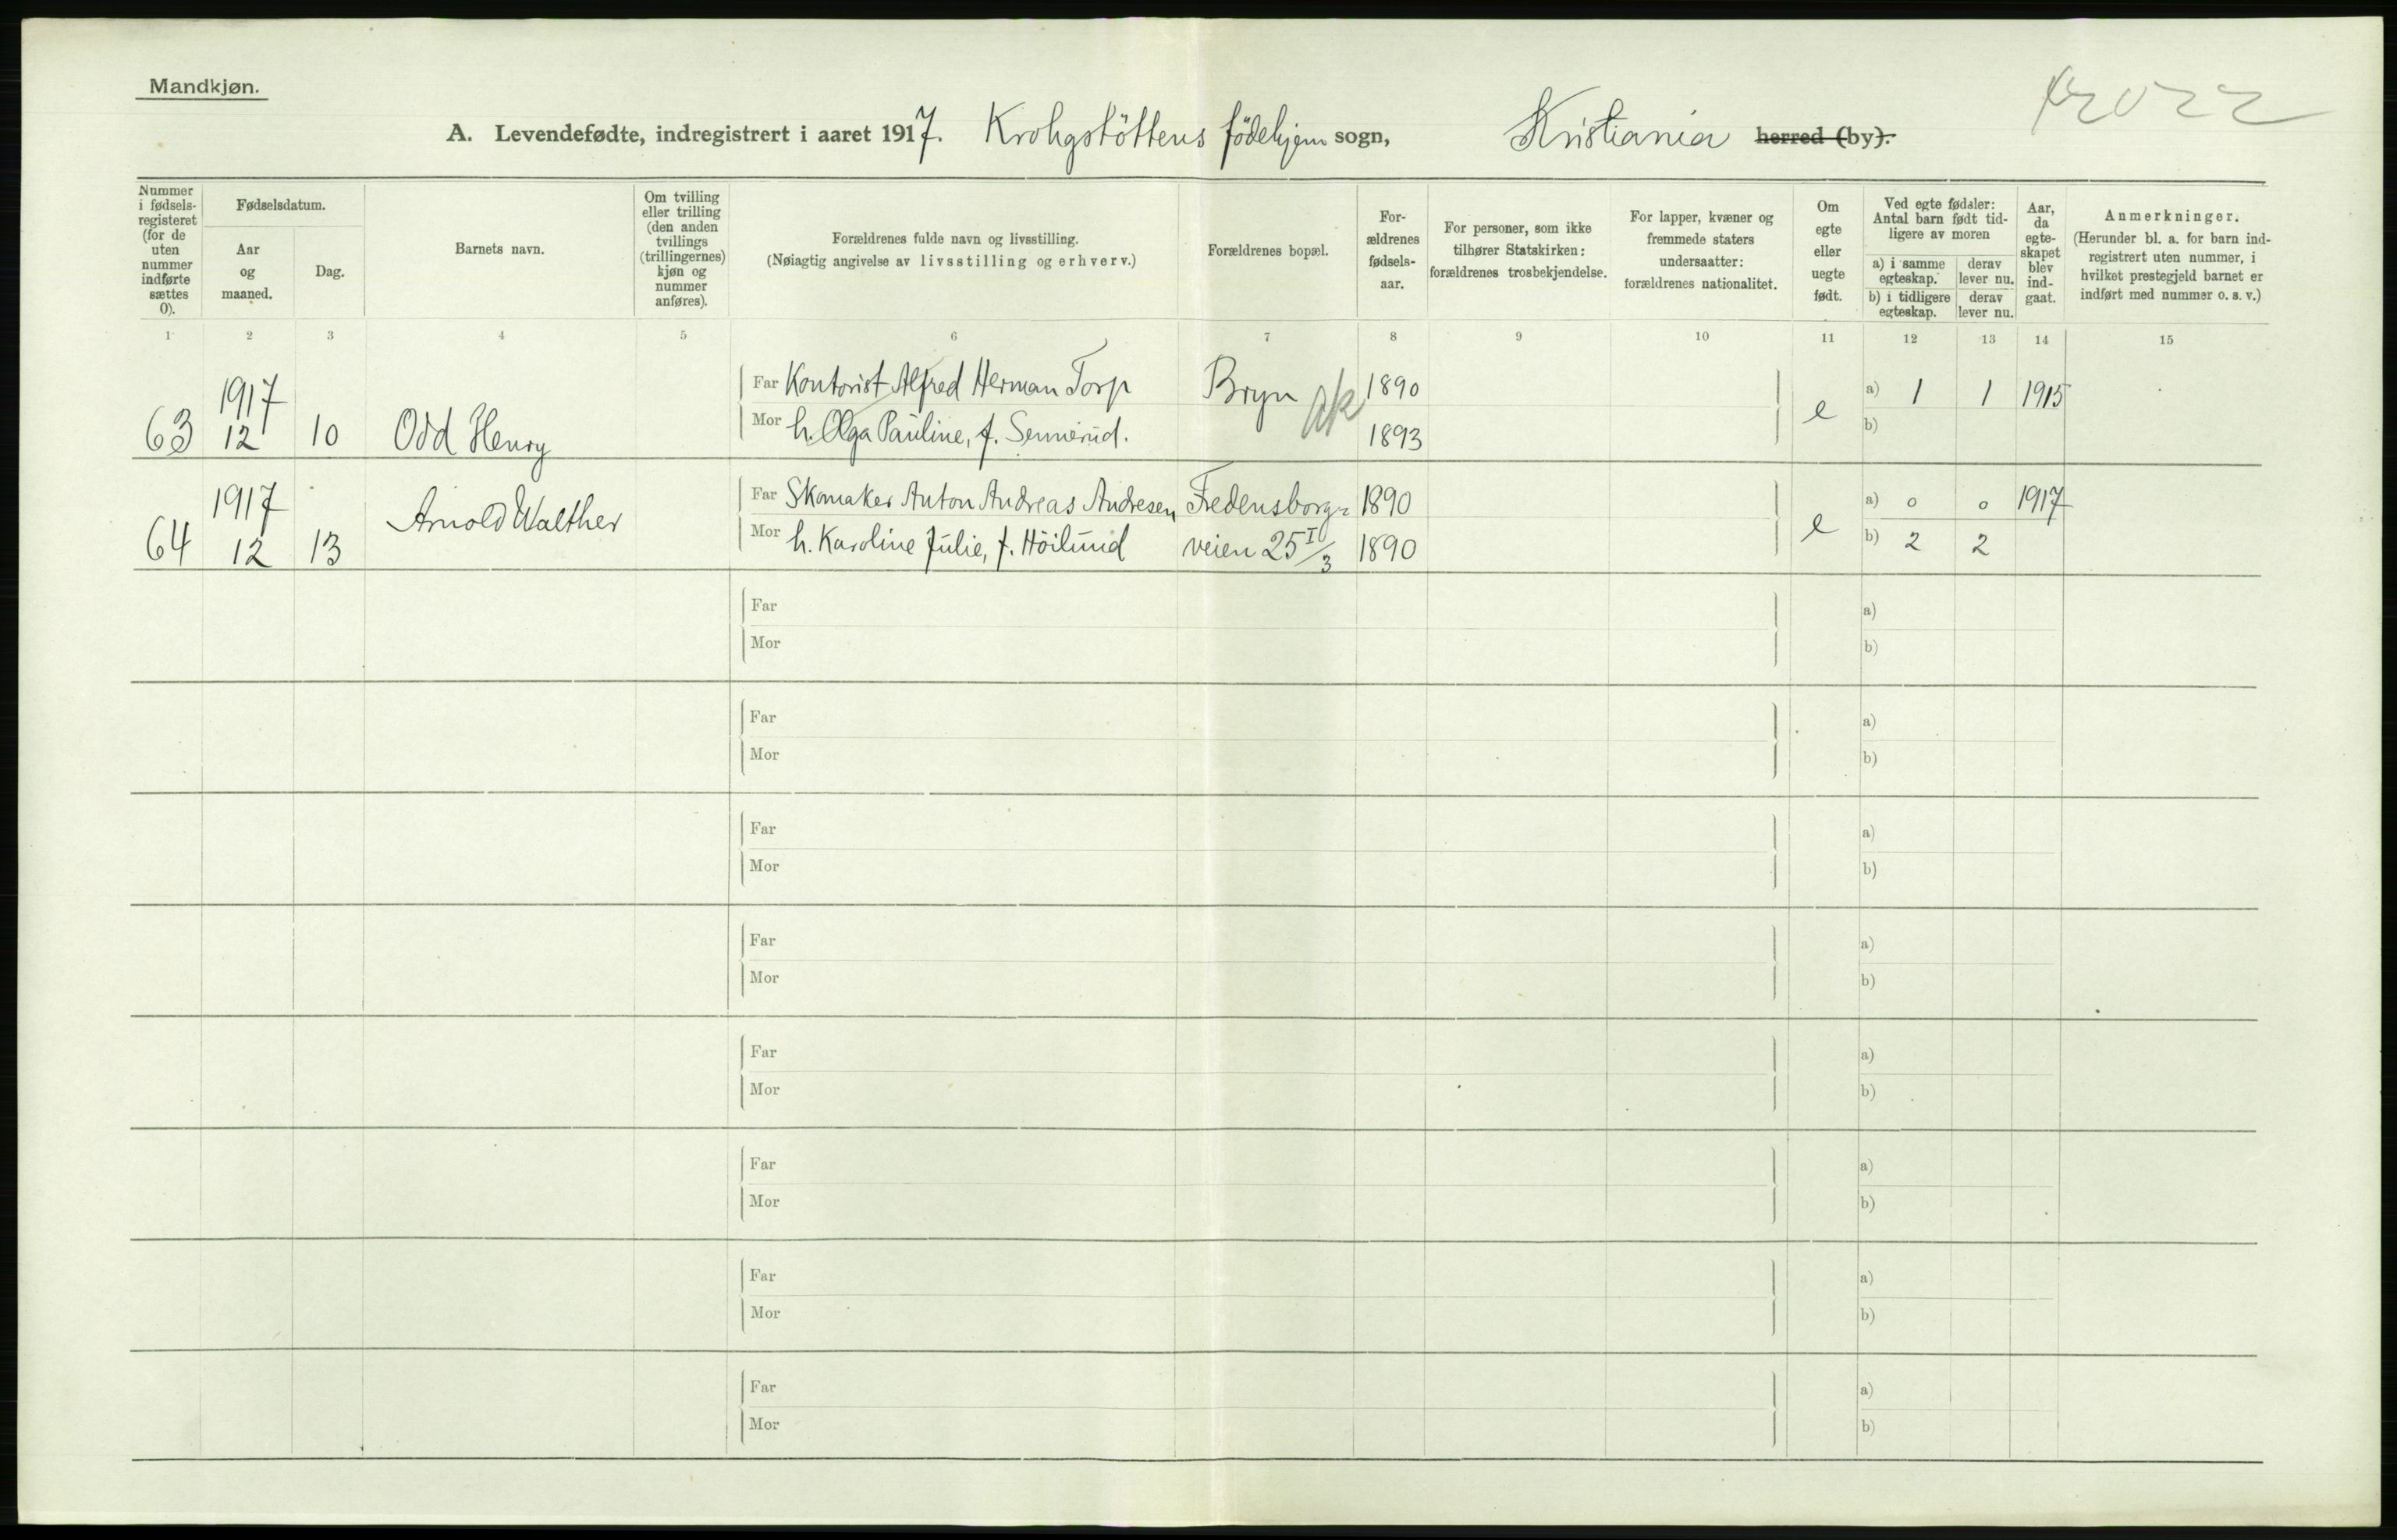 Mandkjøn.
A. Levendefødte, indregistrert i aaret 1917. Krohgstöttens födehjem sogn, Kristiania herred (by).
Nummer i fødsels-registeret (for de uten nummer indførte sættes 0).
Fødselsdatum.
Aar og maaned.
Dag.
Barnets navn.
Om tvilling eller trilling (den anden tvillings (trillingernes) kjøn og nummer anføres).
Forældrenes fulde navn og livsstilling.
(Nøiagtig angivelse av livsstilling og erhverv.)
Forældrenes bopæl.
For-ældrenes fødsels-aar.
For personer, som ikke tilhører Statskirken: forældrenes trosbekjendelse.
For lapper, kvæner og fremmede staters undersaatter: forældrenes nationalitet.
Om egte eller uegte født.
Ved egte fødsler: Antal barn født tid-ligere av moren
a) i samme egteskap.
derav lever nu.
b) i tidligere egteskap.
derav lever nu.
Aar, da egte-skapet blev ind-gaat.
Anmerkninger.
(Herunder bl. a. for barn ind-registrert uten nummer, i hvilket prestegjeld barnet er indført med nummer o. s. v.)
1 2 3 4 5 6 7 8 9 10 11 12 13 14 15
1917 Far Kontorist Alfred Herman Torp Bryn Ak 1890 e a) 1 1 1915
63 12 10 Odd Henry Mor h. Olga Pauline, f. Sennerud. 1893 b)
1917 Arnold Walther Far Skomaker Anton Andreas Andresen Fredensborg- 1890 e a) 0 0 1917
64 12 13 Mor h. Karoline Julie, f. Höilund veien 25 I/3 1890 b) 2 2
Far a)
Mor b)
Far a)
Mor b)
Far a)
Mor b)
Far a)
Mor b)
Far a)
Mor b)
Far a)
Mor b)
Far a)
Mor b)
Far a)
Mor b)